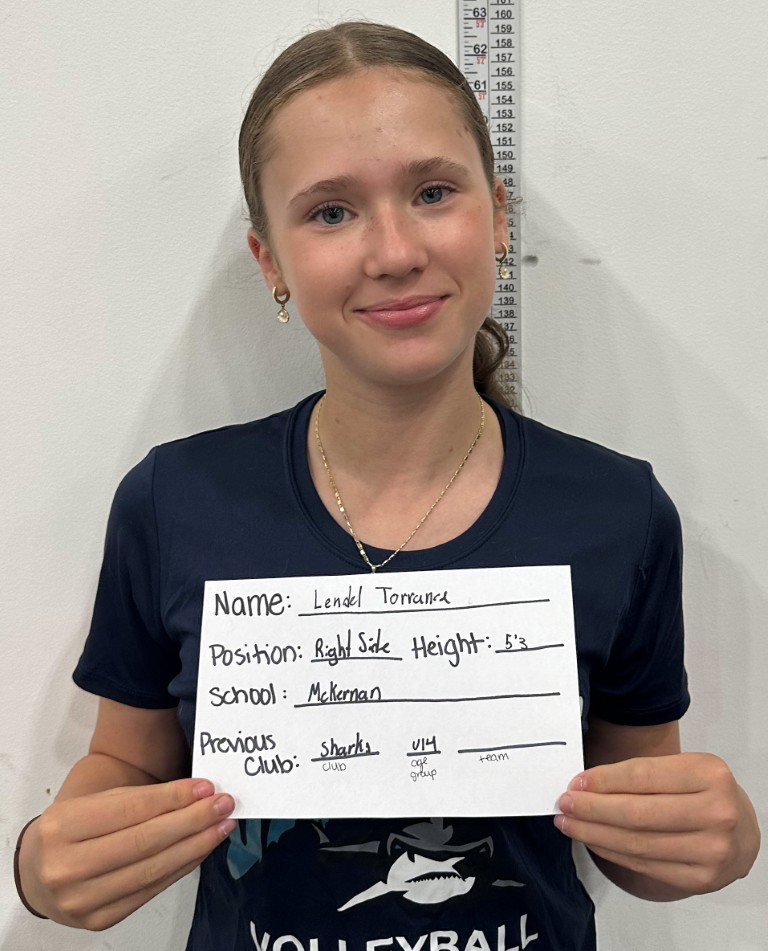 63
160
159
62
158
157
156
61
155
154
153
152
151
150
149
140
139
138
Name: Lendel Torrance
Position: Right Side Height: 5'3
School: McKernan
Previous Club: Sharks U14
club age group team
VOLLEYBALL